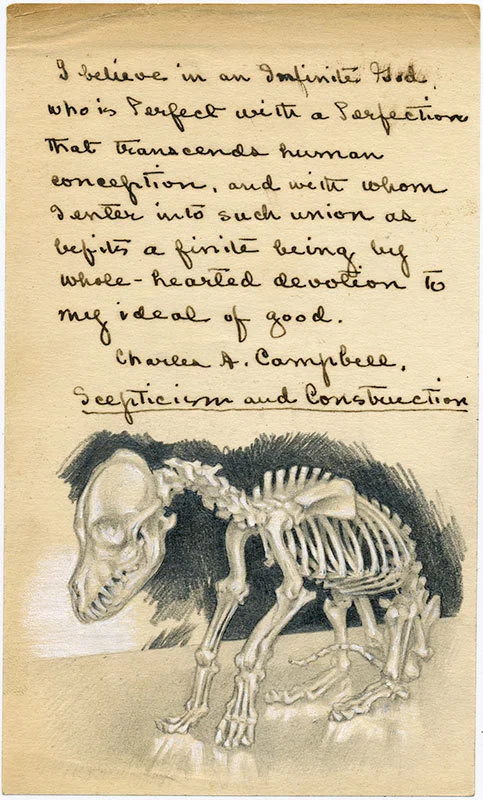 I believe in an Infinite God,
who is Perfect with a Perfection
that transcends human
conception, and with whom
I enter into such union as
befits a finite being by
whole-hearted devotion to
my ideal of good.
Charles A. Campbell,
Scepticism and Construction